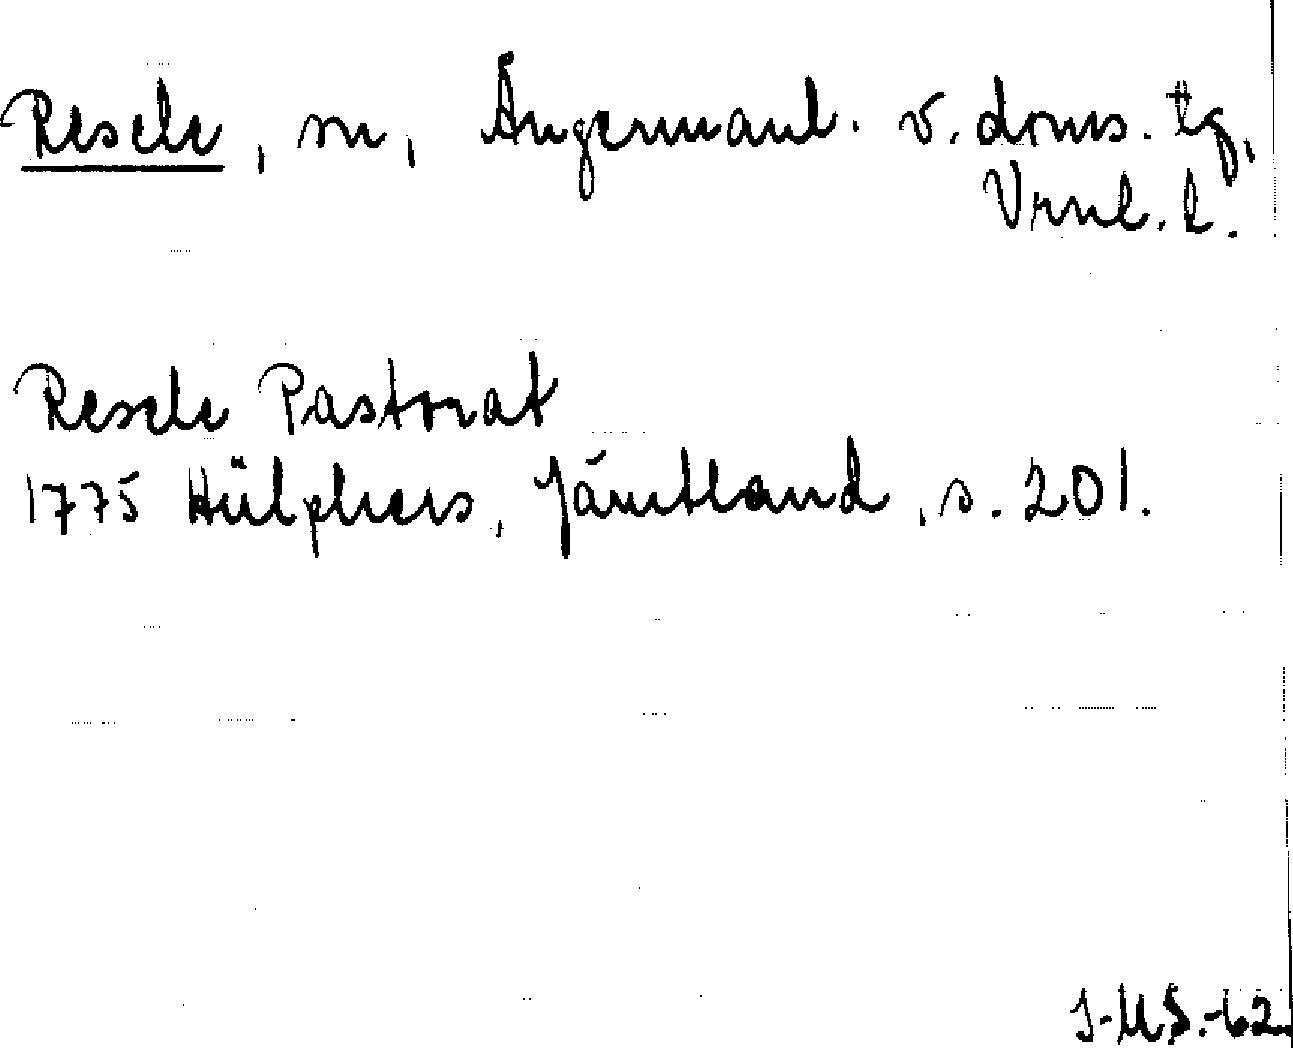 Resele, sn, Ångermanl. v. doms. tg,
Vrnl. l.
Resele Pastorat
1775 Hülphers, Jämtland, s. 201.
J-M S.-62